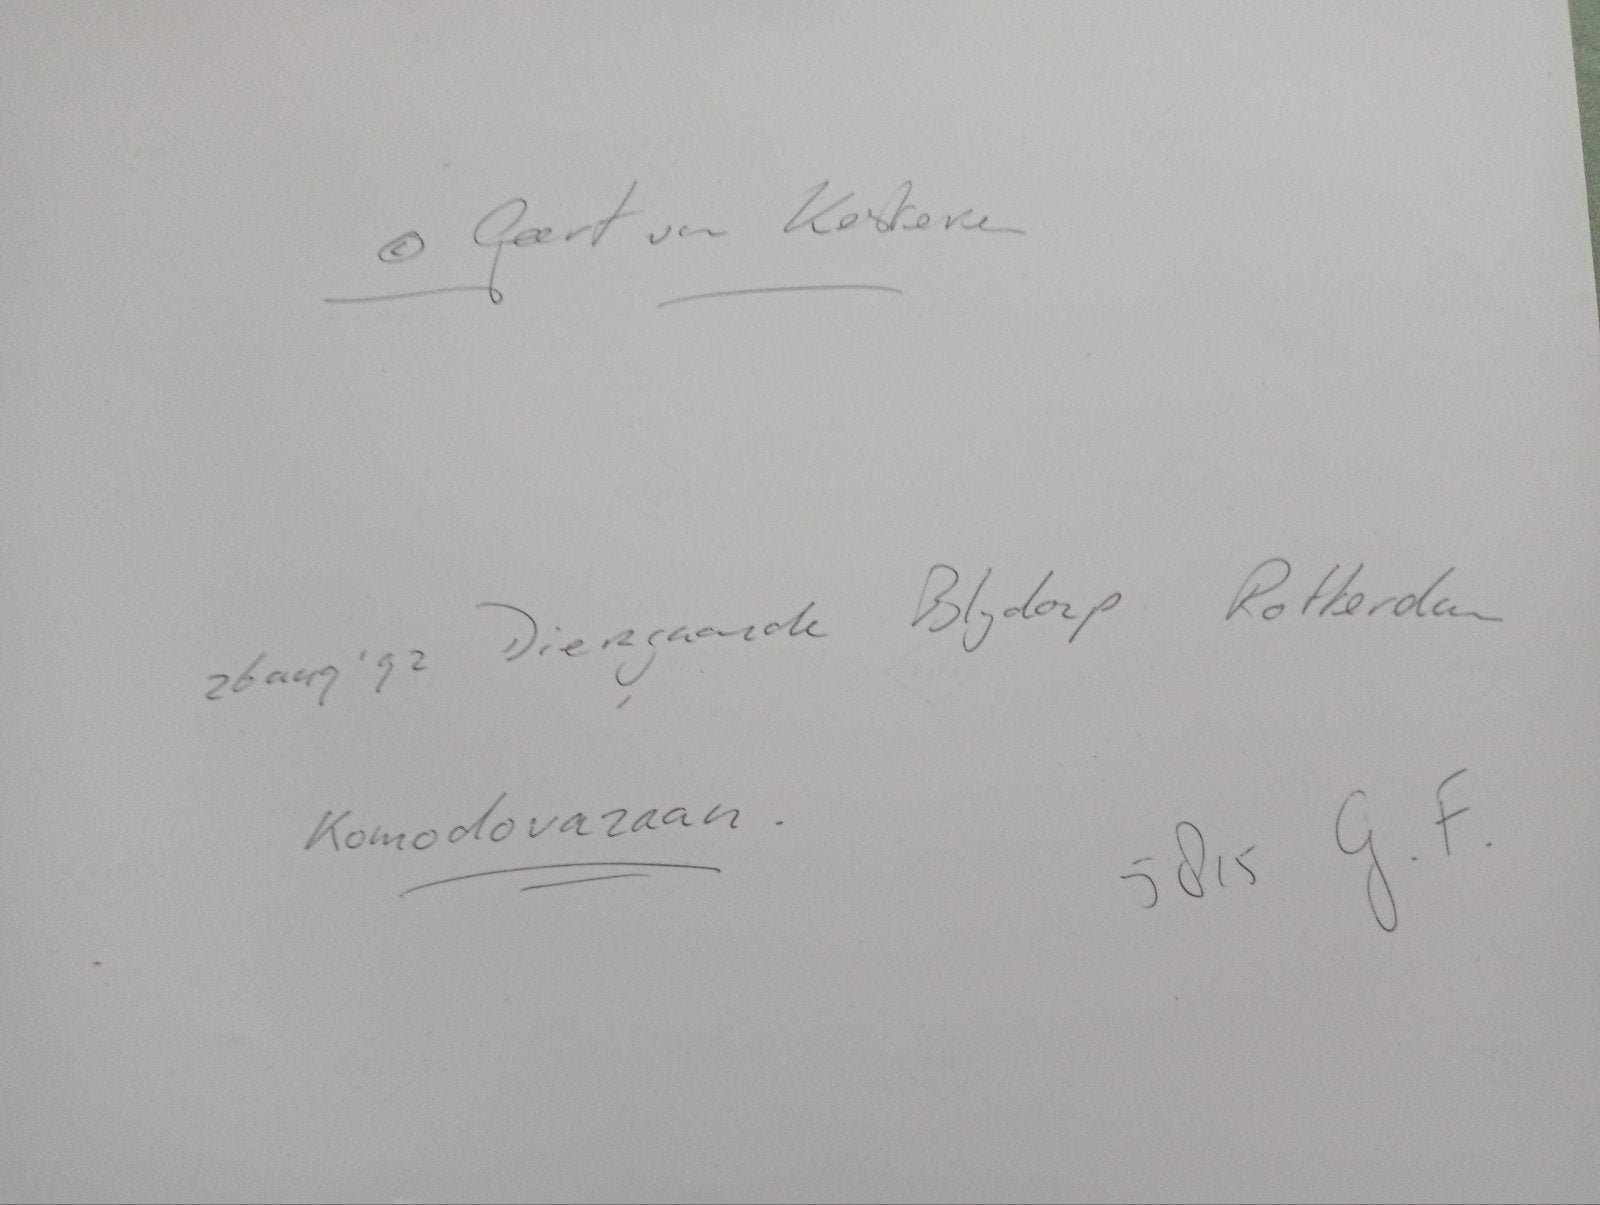 © Geert van Kesteren
26 aug '92 Diergaarde Blydorp Rotterdam
Komodovaraan.
5815 G.F.